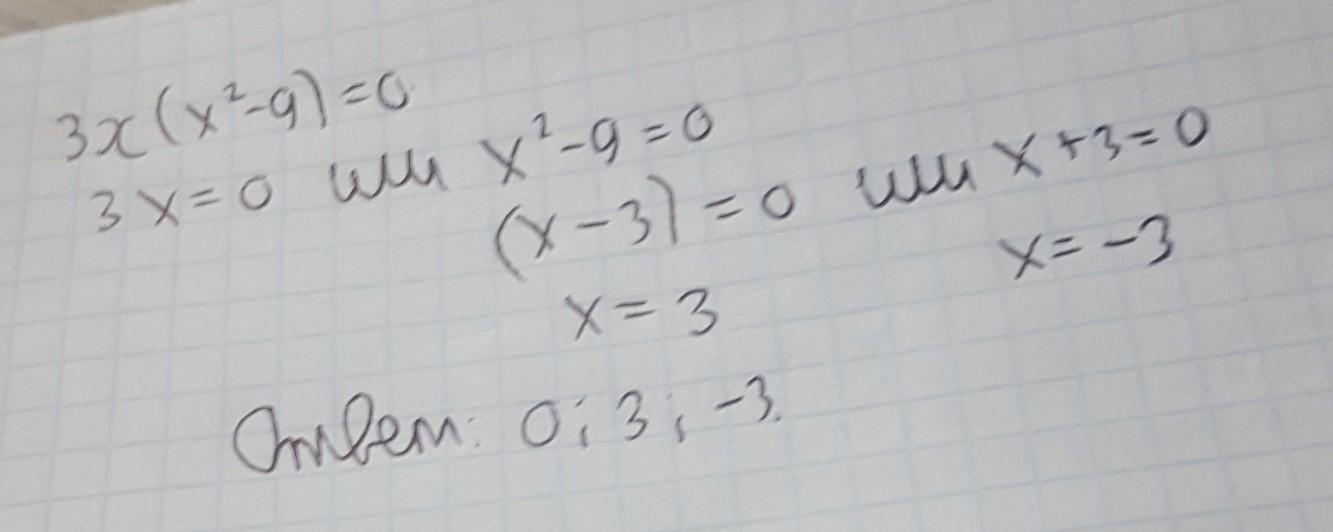 3x(x²-9)=0
3x=0 или x²-9=0
(x-3)=0 или x+3=0
x=3
x=-3
Ответ: 0; 3; -3.